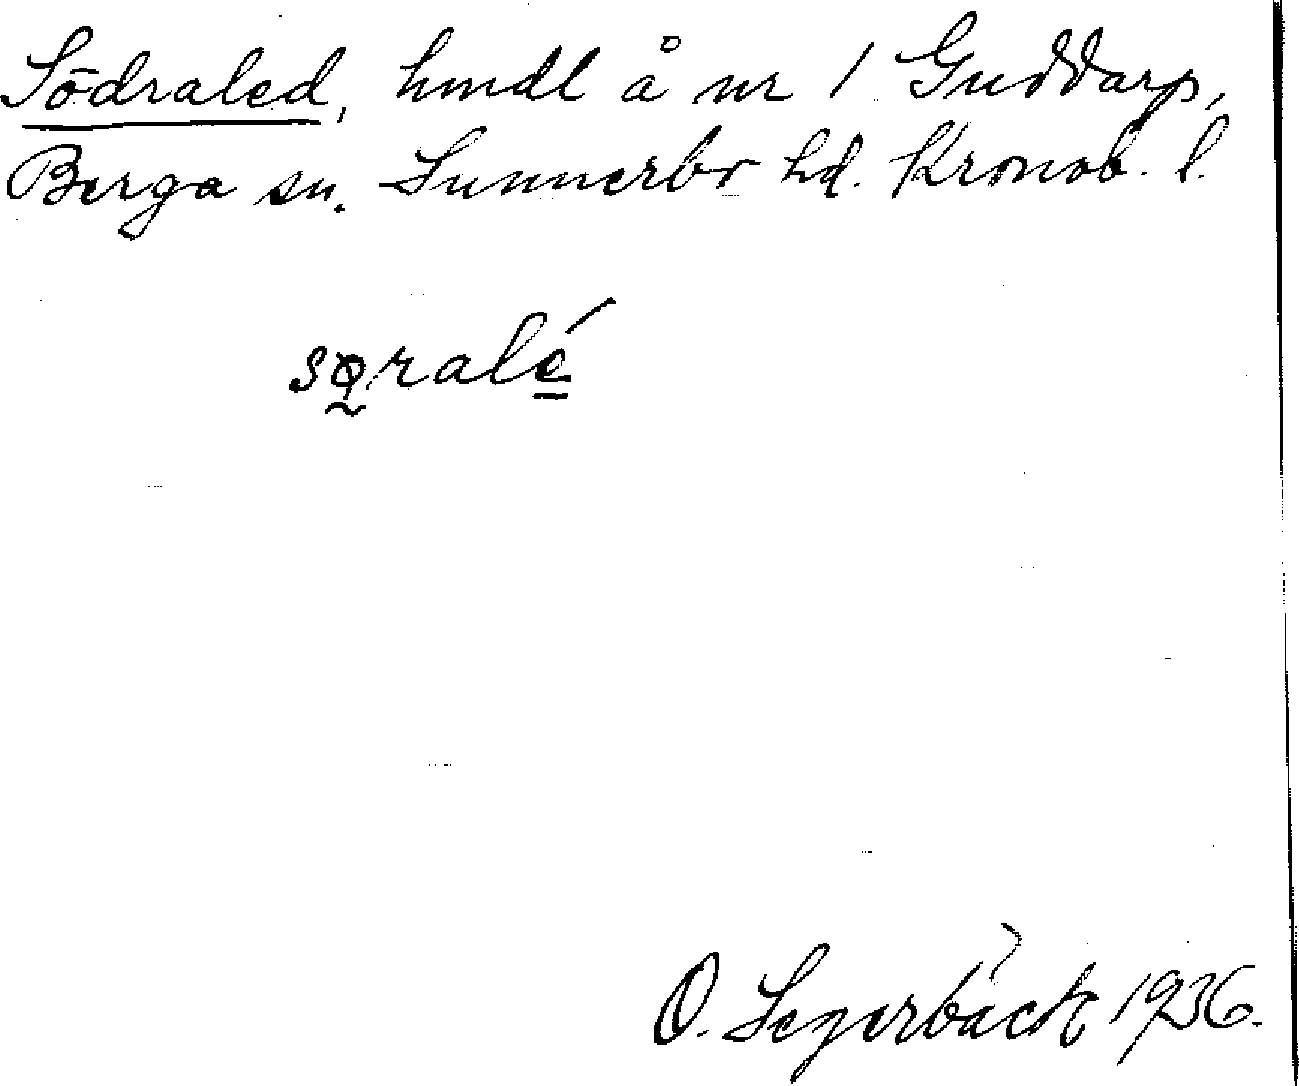 Södraled, hmdl å nr 1 Guddarp,
Berga sn. Sunnerbo hd. Kronob. l.
sø̰ralé̲
O. Segerbäck 1936.